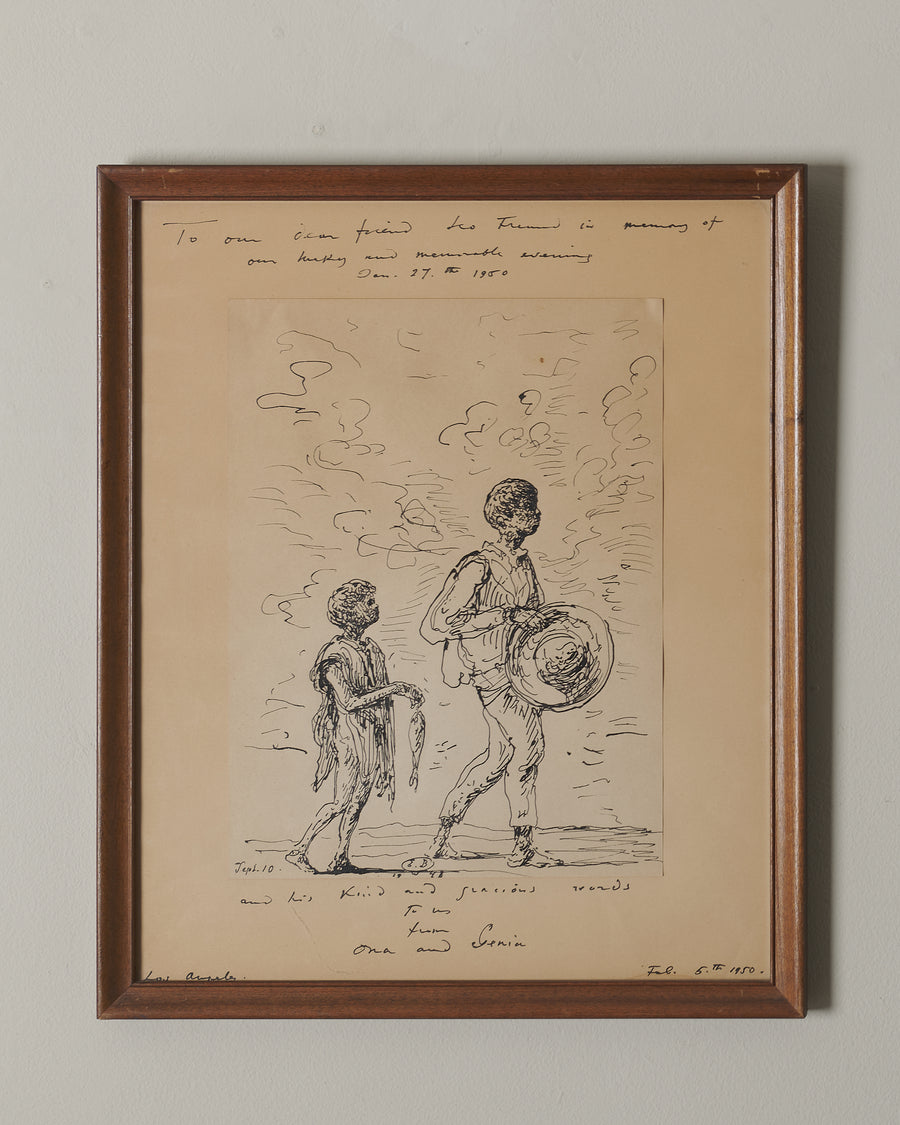 To our dear friend Leo Freund in memory of
our lucky and memorable evening
Jan. 27.th 1950
Sept. 10.
E.B
and his kind and gracious words
to us
from
Ona and Genia
Los Angeles.
Feb. 5.TH 1950.